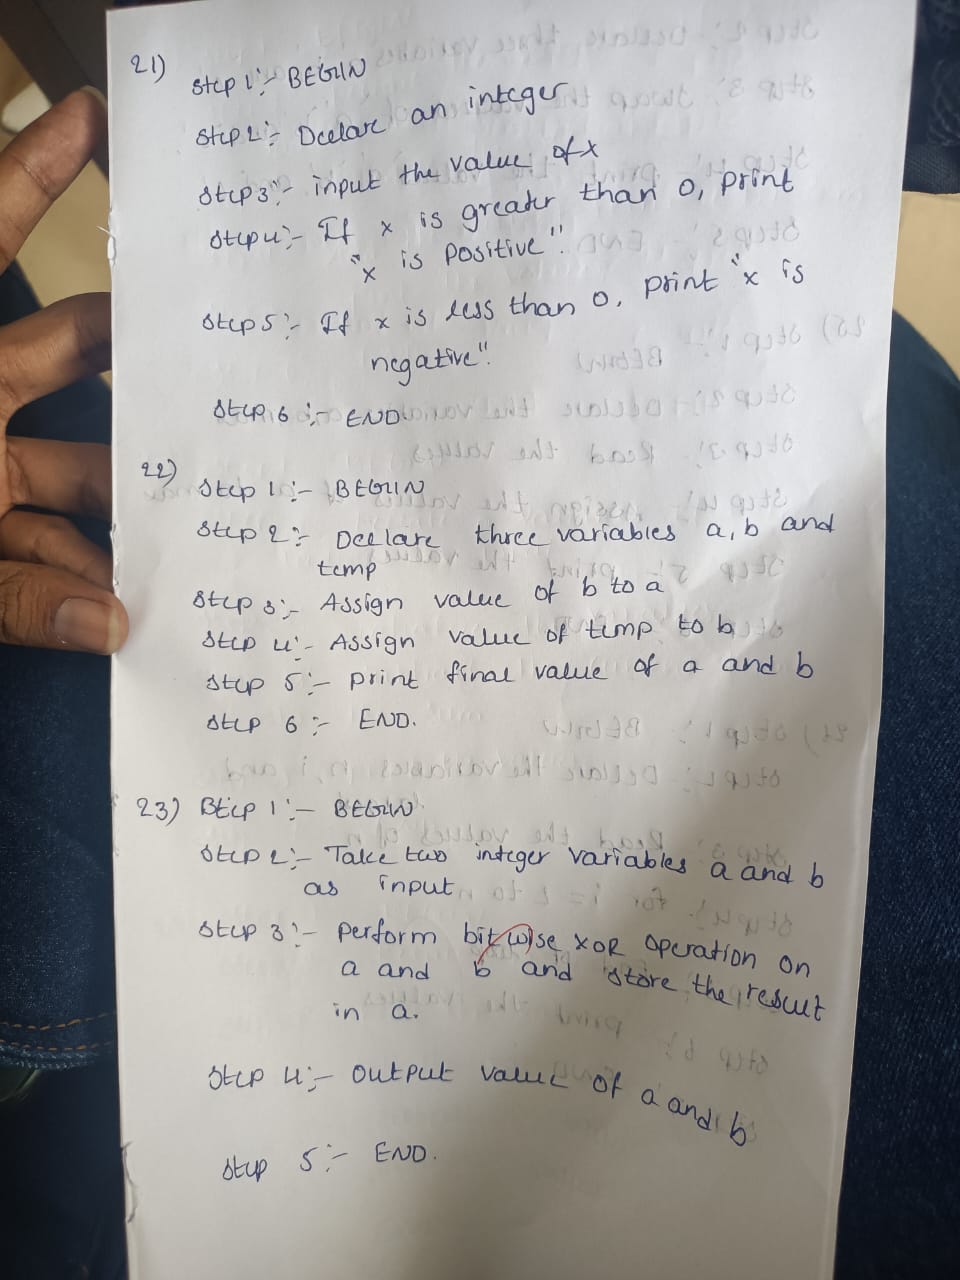 21) Step 1:- BEGIN
Step 2:- Declare an integer
Step 3:- input the value of x
Step 4:- If x is greater than 0, print
"x is positive".
Step 5:- If x is less than 0, print "x is
negative".
Step 6:- END.
22) Step 1:- BEGIN
Step 2:- Declare three variables a, b and
temp
Step 3:- Assign value of b to a
Step 4:- Assign value of temp to b
Step 5:- print final value of a and b
Step 6:- END.
23) Step 1:- BEGIN
Step 2:- Take two integer variables a and b
as input
Step 3:- perform bitwise XOR operation on
a and b and store the result
in a.
Step 4:- output value of a and b
Step 5:- END.